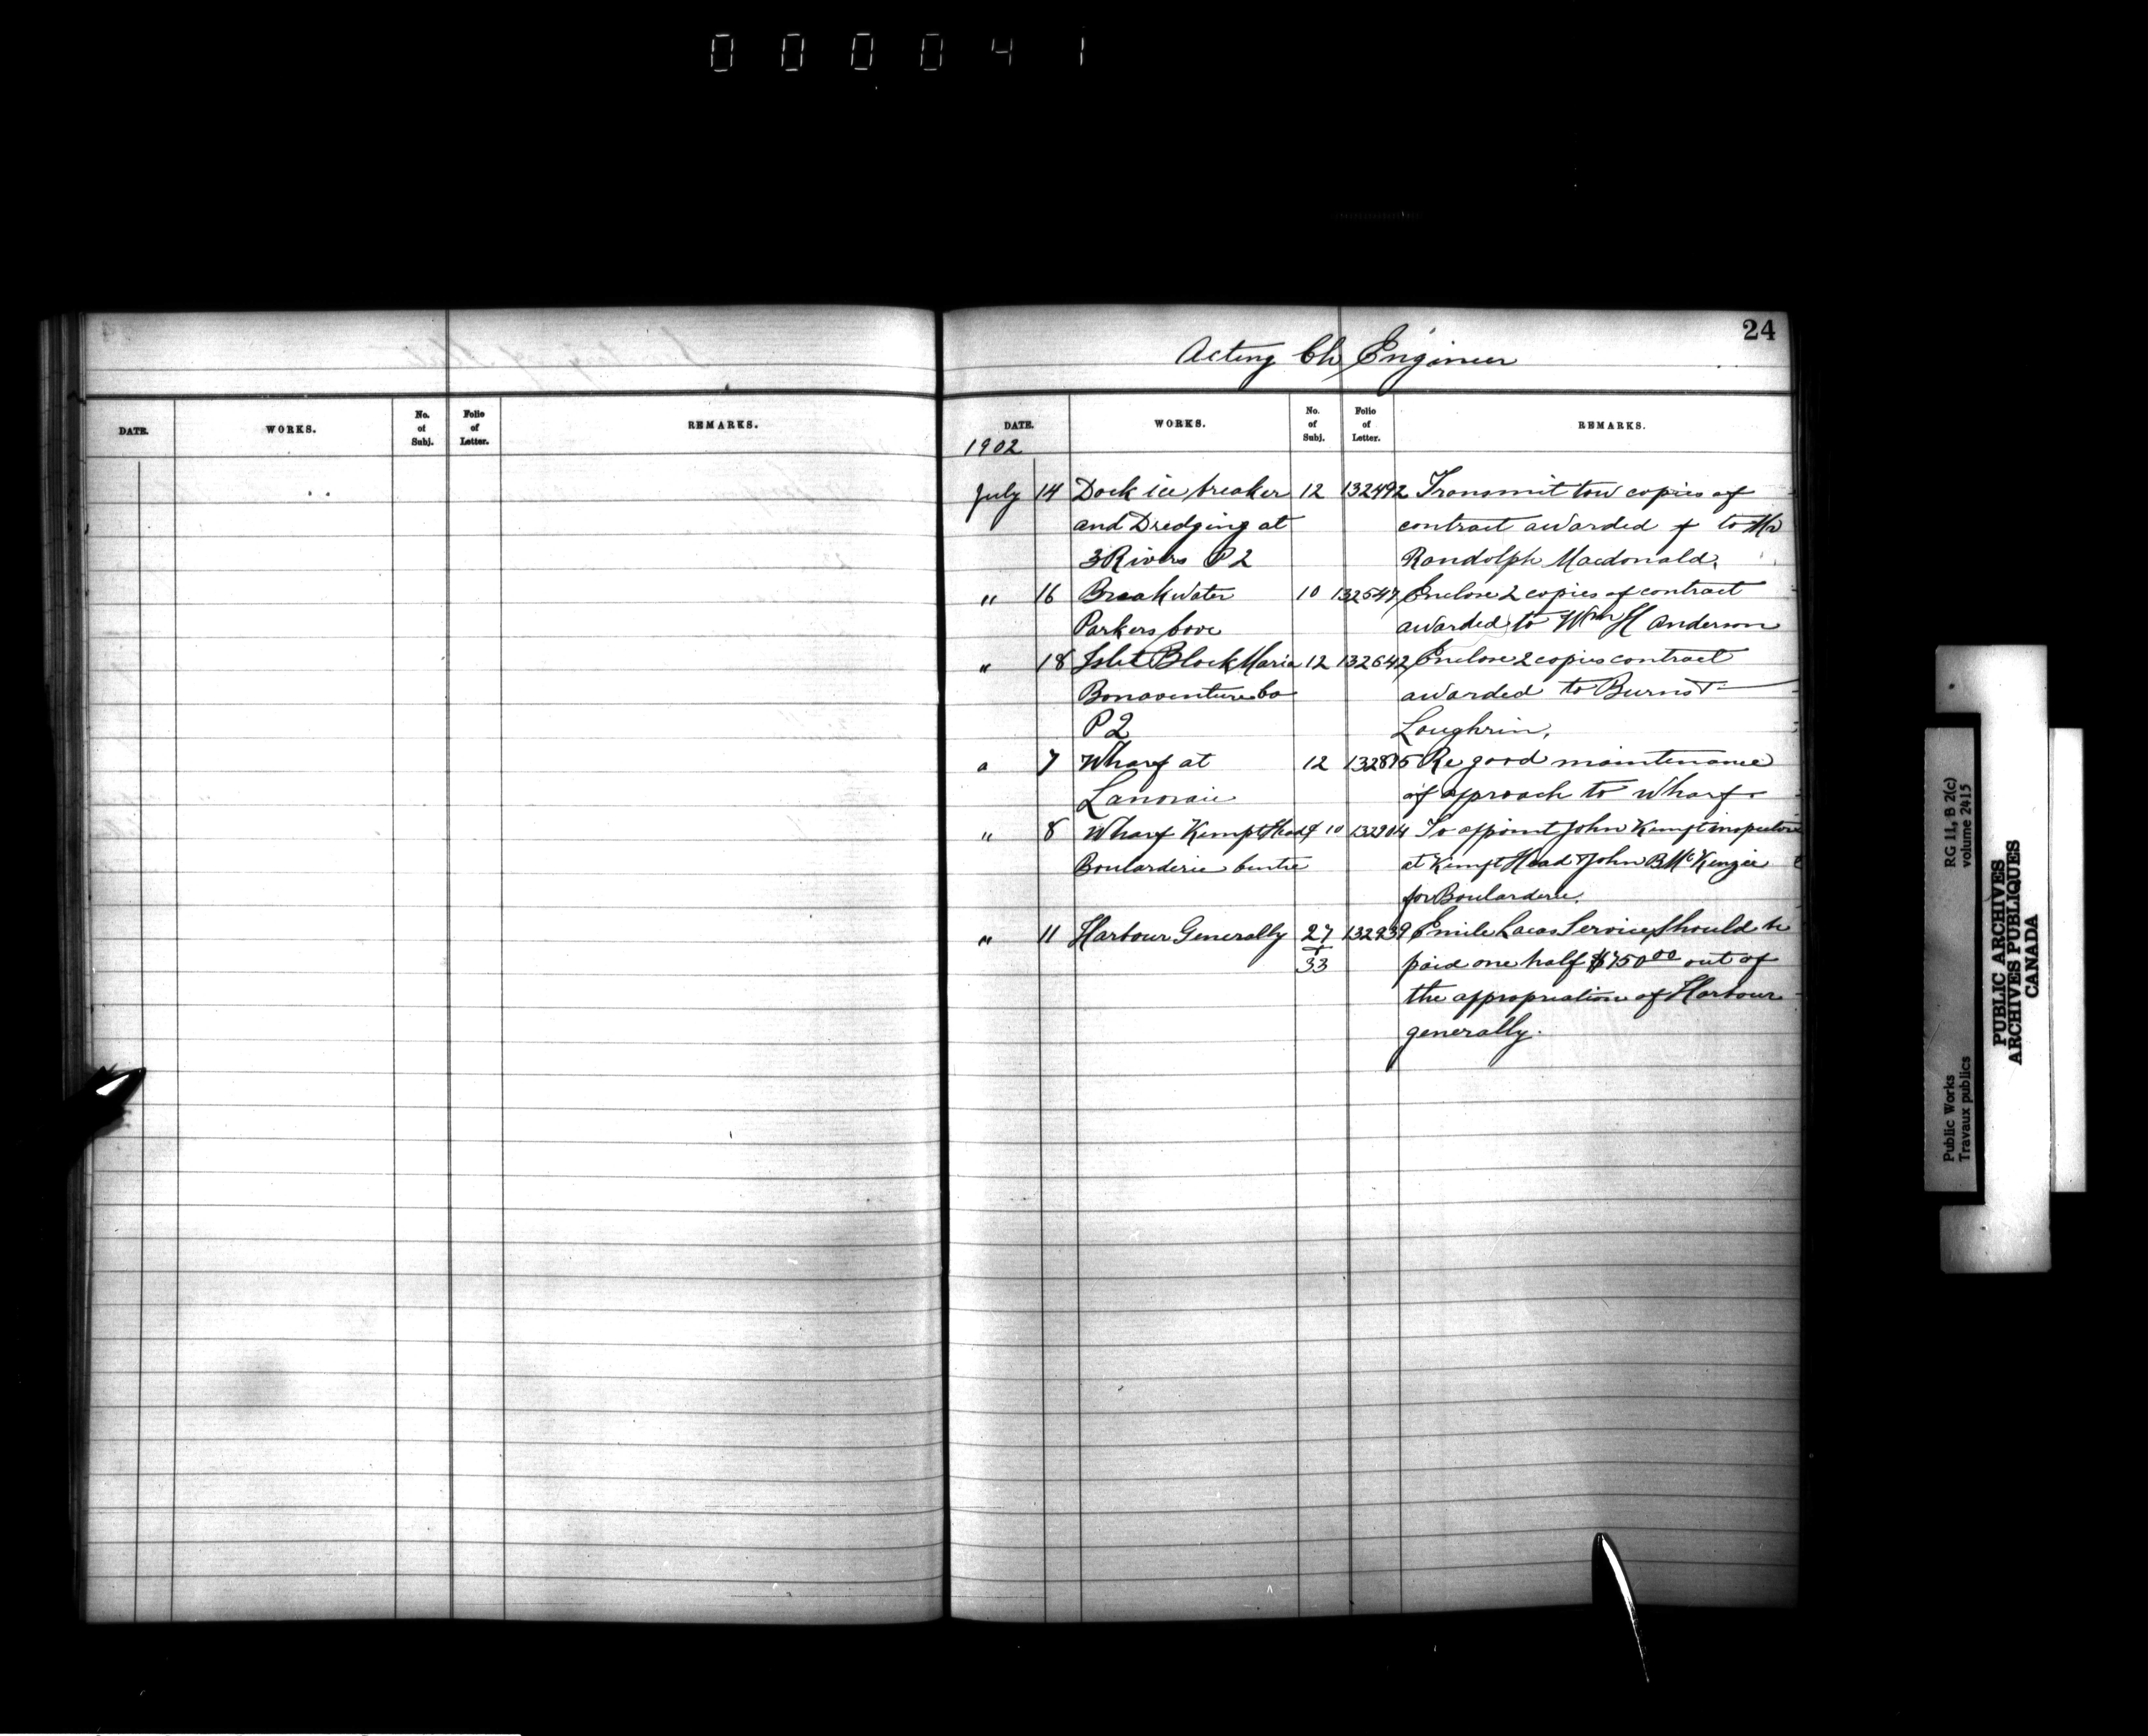 000041
24
Acting Ch Engineer
DATE. WORKS. No. of Subj. Folio of Letter. REMARKS.
DATE. WORKS. No. of Subj. Folio of Letter. REMARKS.
1902
July 14 Dock ice breaker 12 132492 Transmit tow copies of
and Dredging at contract awarded to Mr
3 Rivers P2 Randolph Macdonald.
" 16 Breakwater 10 132547 Enclose 2 copies of contract
Parkers Cove awarded to Wm H Anderson
" 18 Islet Block Maria 12 132642 Enclose 2 copies contract
Bonaventure Co awarded to Burns +
P2 Loughrin.
7 Wharf at 12 132875 Re good maintenance
Lanoraie of approach to wharf
" 8 Wharf Kempt Head & 10 132904 To appoint John Kempt inspector
Boularderie Centre at Kempt Head & John B McKenzie
for Boularderie.
" 11 Harbour Generally 27 132939 Emile Lacas Services should be
+
33 paid one half $750 00 out of
the appropriation of Harbour
generally.
Public Works RG 11, B 2(c)
Travaux publics volume 2415
PUBLIC ARCHIVES
ARCHIVES PUBLIQUES
CANADA